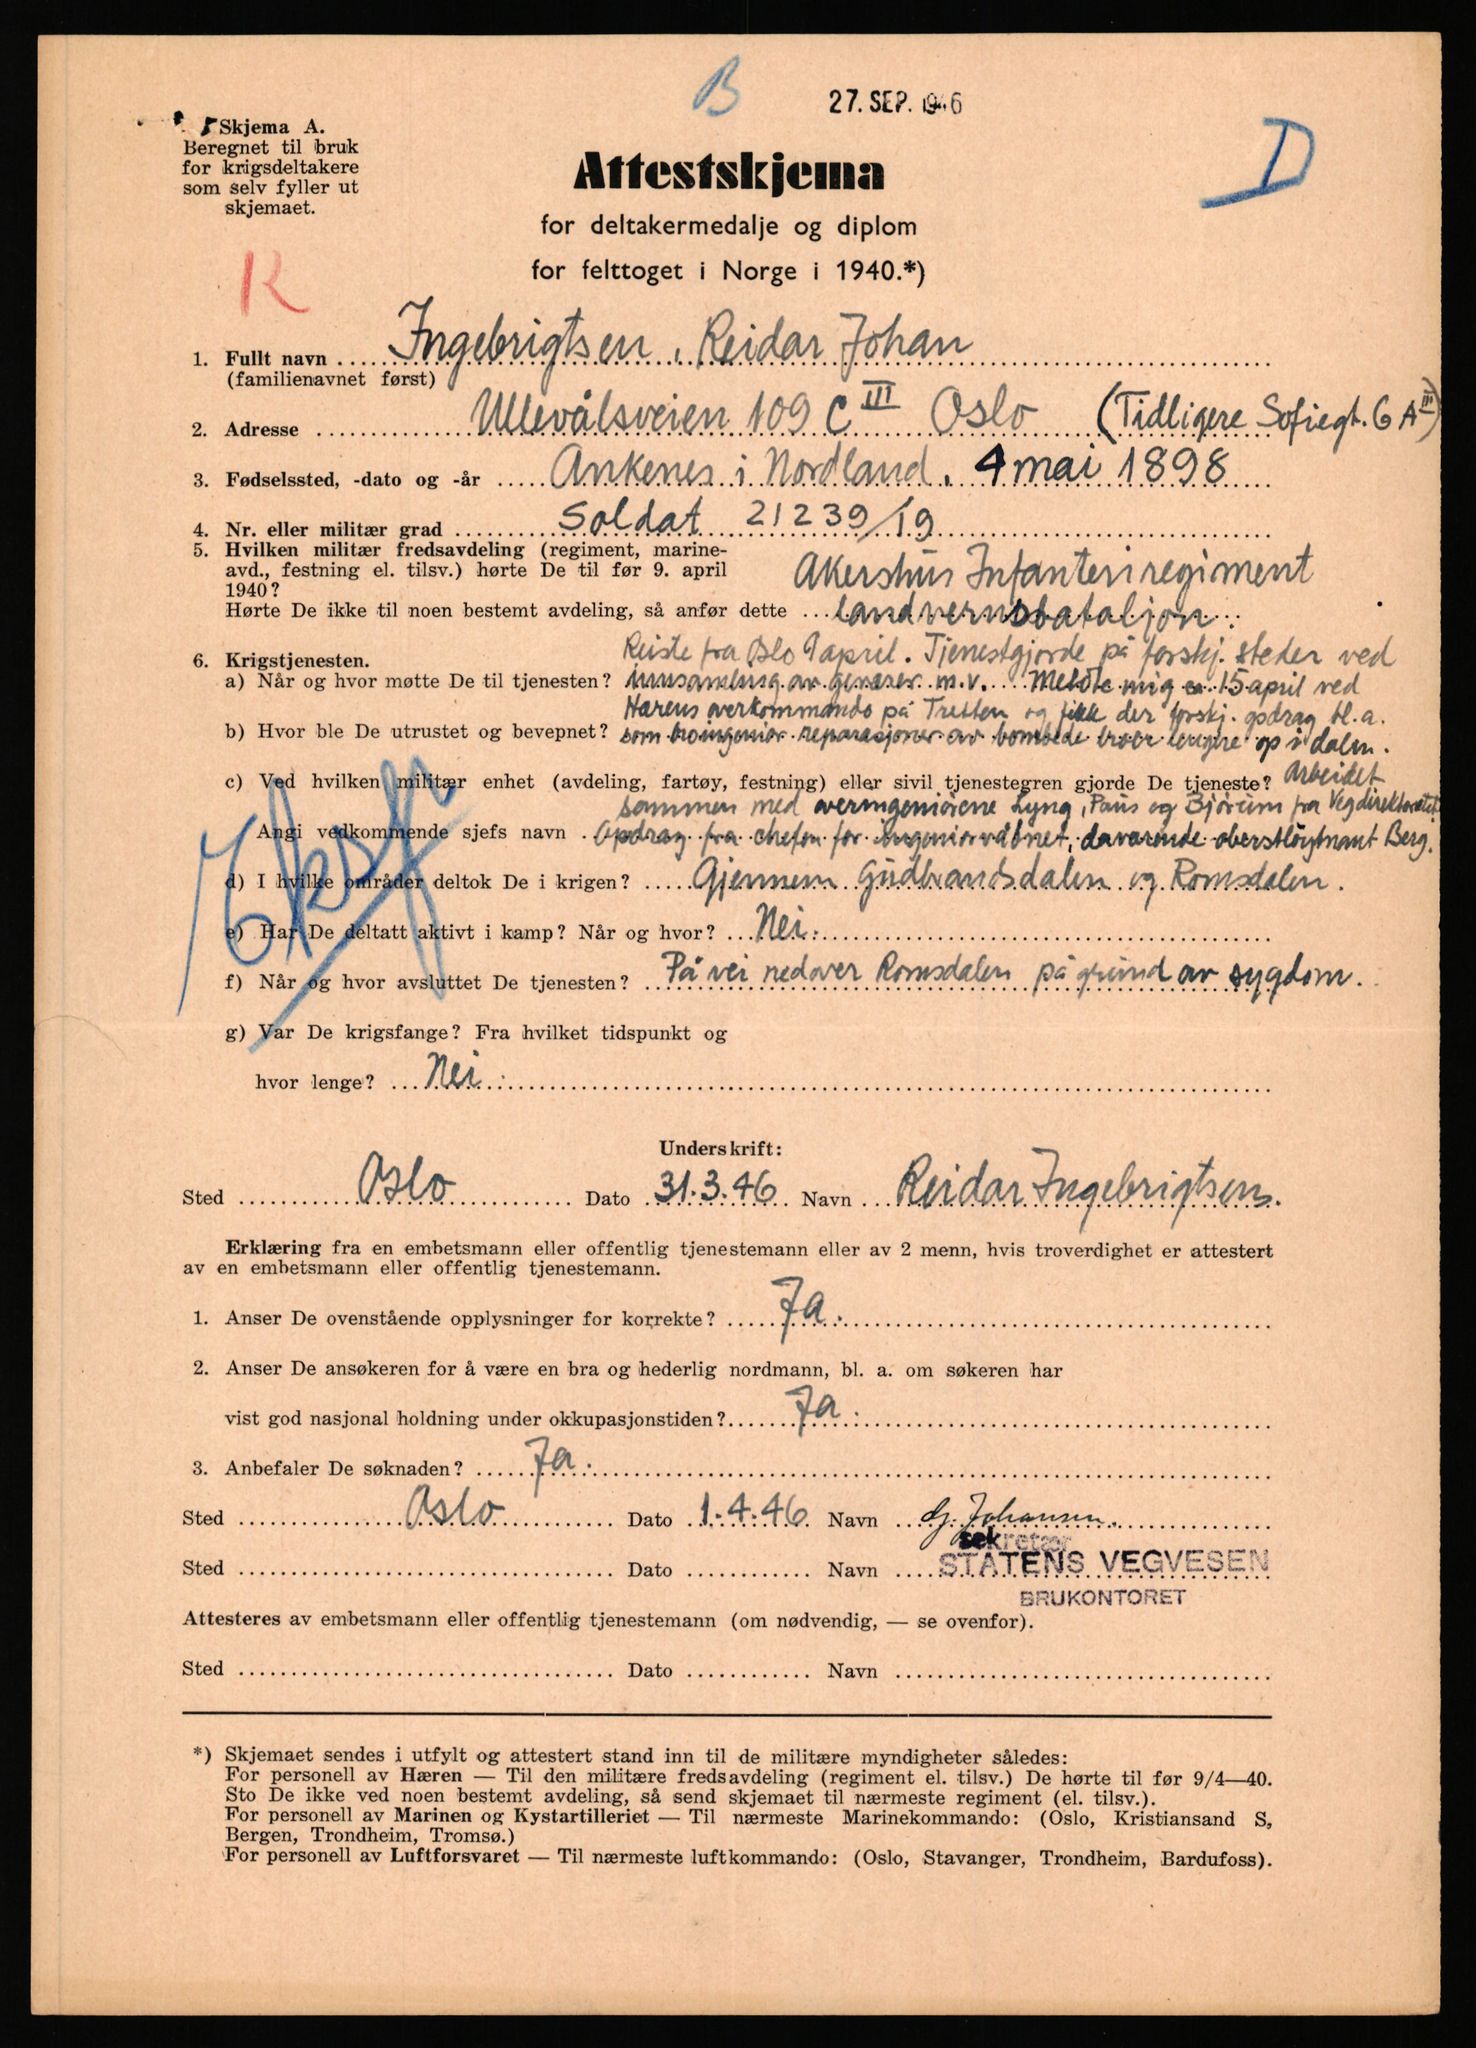 B
27. SEP. 1946
D
Skjema A.
Beregnet til bruk
for krigsdeltakere
som selv fyller ut
skjemaet.
Attestskjema
for deltakermedalje og diplom
for felttoget i Norge i 1940.*)
K
1. Fullt navn .... Ingebrigtsen, Reidar Johan
(familienavnet først)
2. Adresse .... Ullevålsveien 109 C III Oslo (Tidligere Sofiegt. 6 A III)
3. Fødselssted, -dato og -år .... Ankenes i Nordland. 4 mai 1898
4. Nr. eller militær grad .... Soldat 21239/19
5. Hvilken militær fredsavdeling (regiment, marine-
avd., festning el. tilsv.) hørte De til før 9. april
1940? Akershus Infanteriregiment
Hørte De ikke til noen bestemt avdeling, så anfør dette .... landvernsbataljon.
6. Krigstjenesten. Reiste fra Oslo 9 april. Tjenestgjorde på forskj. steder ved
a) Når og hvor møtte De til tjenesten? innsamling av geværer m.v. Meldte mig 15 april ved
Hærens overkommando på Tretten og fikk der forskj. opdrag bl.a.
b) Hvor ble De utrustet og bevepnet? som broingeniør reparasjoner av bombede broer lengere op i dalen.
c) Ved hvilken militær enhet (avdeling, fartøy, festning) eller sivil tjenestegren gjorde De tjeneste? Arbeidet
sammen med overingeniørene Lyng, Paus og Bjørum fra Vegdirektoratet.
Angi vedkommende sjefs navn . Opdrag fra chefen for ingeniørvåbnet, daværende oberstløytnant Berg.
d) I hvilke områder deltok De i krigen? .... Gjennem Gudbrandsdalen og Romsdalen.
e) Har De deltatt aktivt i kamp? Når og hvor? ... Nei.
f) Når og hvor avsluttet De tjenesten? .. På vei nedover Romsdalen på grund av sygdom.
g) Var De krigsfange? Fra hvilket tidspunkt og
hvor lenge? ... Nei.
Underskrift:
Sted .... Oslo .... Dato 31.3.46 Navn ... Reidar Ingebrigtsen.
Erklæring fra en embetsmann eller offentlig tjenestemann eller av 2 menn, hvis troverdighet er attestert
av en embetsmann eller offentlig tjenestemann.
1. Anser De ovenstående opplysninger for korrekte? .... Ja.
2. Anser De ansøkeren for å være en bra og hederlig nordmann, bl. a. om søkeren har
vist god nasjonal holdning under okkupasjonstiden? .... Ja.
3. Anbefaler De søknaden? .... Ja.
Sted .... Oslo .... Dato 1.4.46 Navn ... G. Johansen.
sekretær
Sted .... Dato .... Navn .... STATENS VEGVESEN
BRUKONTORET
Attesteres av embetsmann eller offentlig tjenestemann (om nødvendig, — se ovenfor).
Sted .... Dato .... Navn ....
*) Skjemaet sendes i utfylt og attestert stand inn til de militære myndigheter således:
For personell av Hæren — Til den militære fredsavdeling (regiment el. tilsv.) De hørte til før 9/4—40.
Sto De ikke ved noen bestemt avdeling, så send skjemaet til nærmeste regiment (el. tilsv.).
For personell av Marinen og Kystartilleriet — Til nærmeste Marinekommando: (Oslo, Kristiansand S,
Bergen, Trondheim, Tromsø.)
For personell av Luftforsvaret — Til nærmeste luftkommando: (Oslo, Stavanger, Trondheim, Bardufoss).